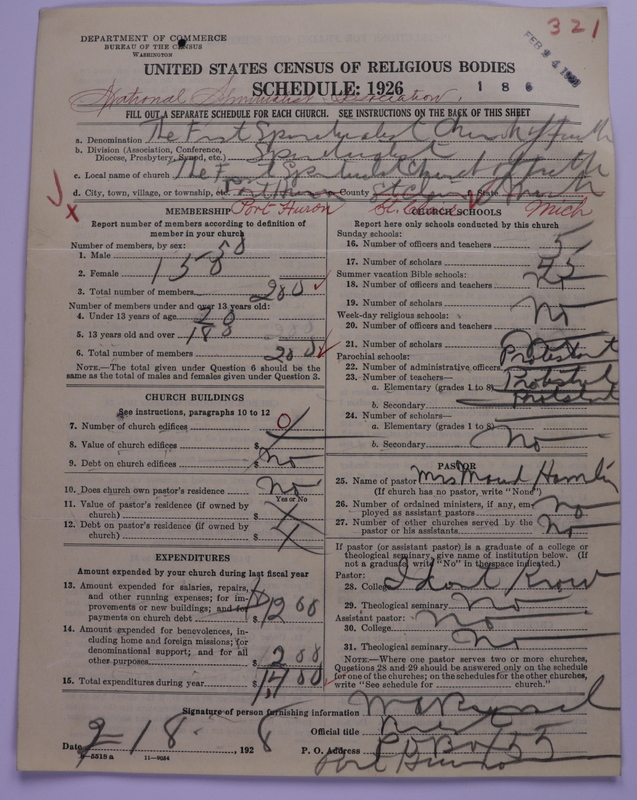 321
DEPARTMENT OF COMMERCE
BUREAU OF THE CENSUS
WASHINGTON
FEB 24 1928
UNITED STATES CENSUS OF RELIGIOUS BODIES
SCHEDULE: 1926
1 8 6
National Spiritualist Association.
FILL OUT A SEPARATE SCHEDULE FOR EACH CHURCH. SEE INSTRUCTIONS ON THE BACK OF THIS SHEET
a. Denomination The First Spiritualist Church of truth
b. Division (Association, Conference,
Diocese, Presbytery, Synod, etc.) Spiritualist
c. Local name of church The First Spiritualist Church of truth
d. City, town, village, or township, etc. Port Huron County St Clair State
Port Huron St. Clair Mich
MEMBERSHIP
Report number of members according to definition of
member in your church
Number of members, by sex:
1. Male 50
2. Female 150
3. Total number of members 200
Number of members under and over 13 years old:
4. Under 13 years of age 20
5. 13 years old and over 180
6. Total number of members 200
NOTE.—The total given under Question 6 should be the
same as the total of males and females given under Question 3.
CHURCH BUILDINGS
See instructions, paragraphs 10 to 12
7. Number of church edifices 0
8. Value of church edifices $
9. Debt on church edifices $ No
10. Does church own pastor's residence No
Yes or No
11. Value of pastor's residence (if owned by
church) $
12. Debt on pastor's residence (if owned by
church) $
EXPENDITURES
Amount expended by your church during last fiscal year
13. Amount expended for salaries, repairs,
and other running expenses; for im-
provements or new buildings; and for
payments on church debt $ 1200
14. Amount expended for benevolences, in-
cluding home and foreign missions; for
denominational support; and for all
other purposes $ 200
15. Total expenditures during year $ 1400
CHURCH SCHOOLS
Report here only schools conducted by this church
Sunday schools:
16. Number of officers and teachers 5
17. Number of scholars 45
Summer vacation Bible schools:
18. Number of officers and teachers No
19. Number of scholars No
Week-day religious schools:
20. Number of officers and teachers
21. Number of scholars
Parochial schools:
22. Number of administrative officers Protestant
23. Number of teachers—
a. Elementary (grades 1 to 8)
b. Secondary
24. Number of scholars—
a. Elementary (grades 1 to 8)
b. Secondary No
PASTOR
25. Name of pastor Mrs Maud Hamlin
(If church has no pastor, write "None")
26. Number of ordained ministers, if any, em-
ployed as assistant pastors No
27. Number of other churches served by the
pastor or his assistants No
If pastor (or assistant pastor) is a graduate of a college or
theological seminary, give name of institution below. (If
not a graduate, write "No" in the space indicated.)
Pastor:
28. College I dont Know
29. Theological seminary No
Assistant pastor:
30. College No
31. Theological seminary No
NOTE.—Where one pastor serves two or more churches,
Questions 28 and 29 should be answered only on the schedule
for one of the churches; on the schedules for the other churches,
write "See schedule for church."
Signature of person furnishing information
Official title
Date 2-18-, 1928
P. O. Address P O Box 55
Port Huron
8-5518 a 11-9054